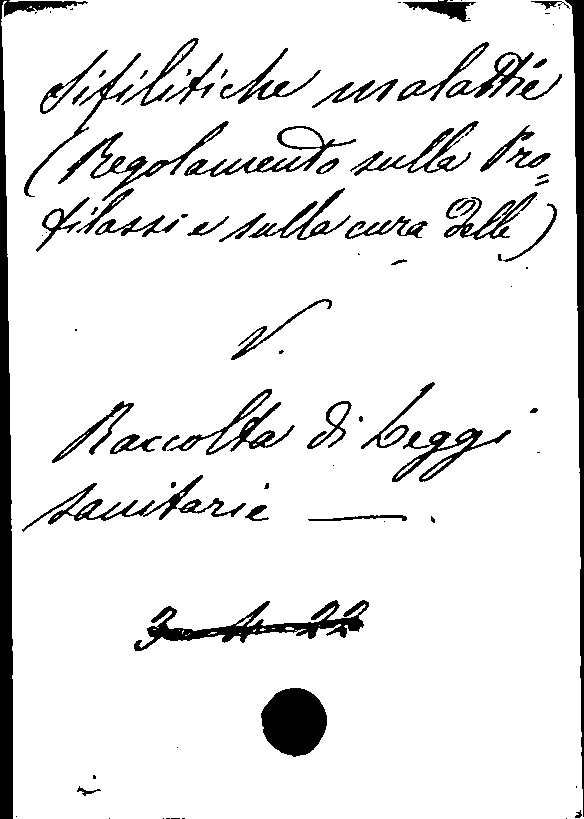 Sifilitiche malattie
(Regolamento sulla Pro=
filassi e sulla cura delle)
V.
Raccolta di Leggi
sanitarie —.